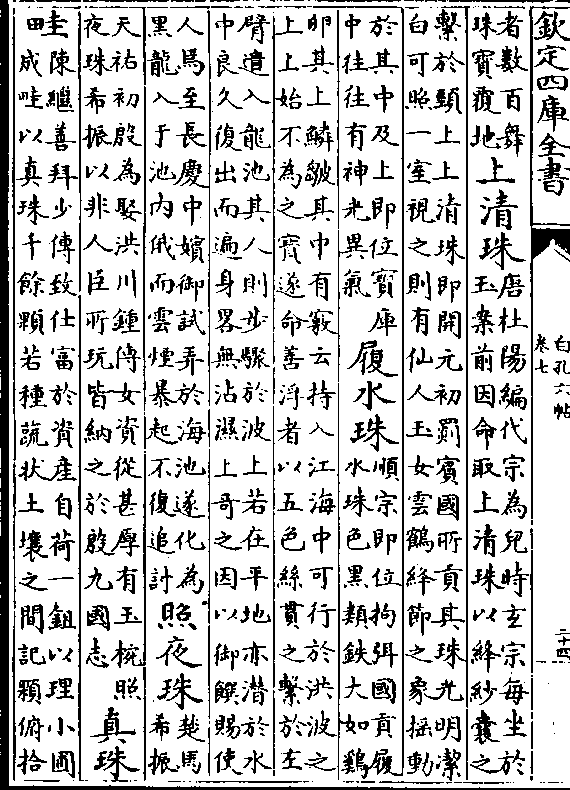 欽定四庫全書
白孔六帖
卷七
二十四
者數百舞
珠寳覆地
上清珠
唐杜陽編代宗為兒時玄宗每坐於
玉案前因命取上清珠以絳紗囊之
繫於頸上上清珠即開元初罽賓國所貢其珠光明潔
白可照一室視之則有仙人玉女雲鶴絳節之象揺動
於其中及上即位寳庫
中往往有神光異氣
履水珠
順宗即位拘弭國貢履
水珠色黒類鉄大如鷄
卵其上鱗皴其中有竅云持入江海中可行於洪波之
上上始不為之寳遂命善浮者以五色絲貫之繫於左
臂遣入龍池其人則步驟於波上若在平地亦潛於水
中良久復出而遍身畧無沾濕上奇之因以御饌賜使
人馬至長慶中嬪御試弄於海池遂化為
黒龍入于池内俄而雲煙暴起不復追計
照夜珠
楚馬
希振
天祐初殷為娶洪川鍾傳女資從甚厚有玉梡照
夜珠希振以非人臣所玩皆納之於殷九國志
真珠
圭陳繼善拜少傅致仕富於資産自荷一鉏以理小圃
田成畦以真珠千餘顆若種蔬状土壤之間記顆俯拾